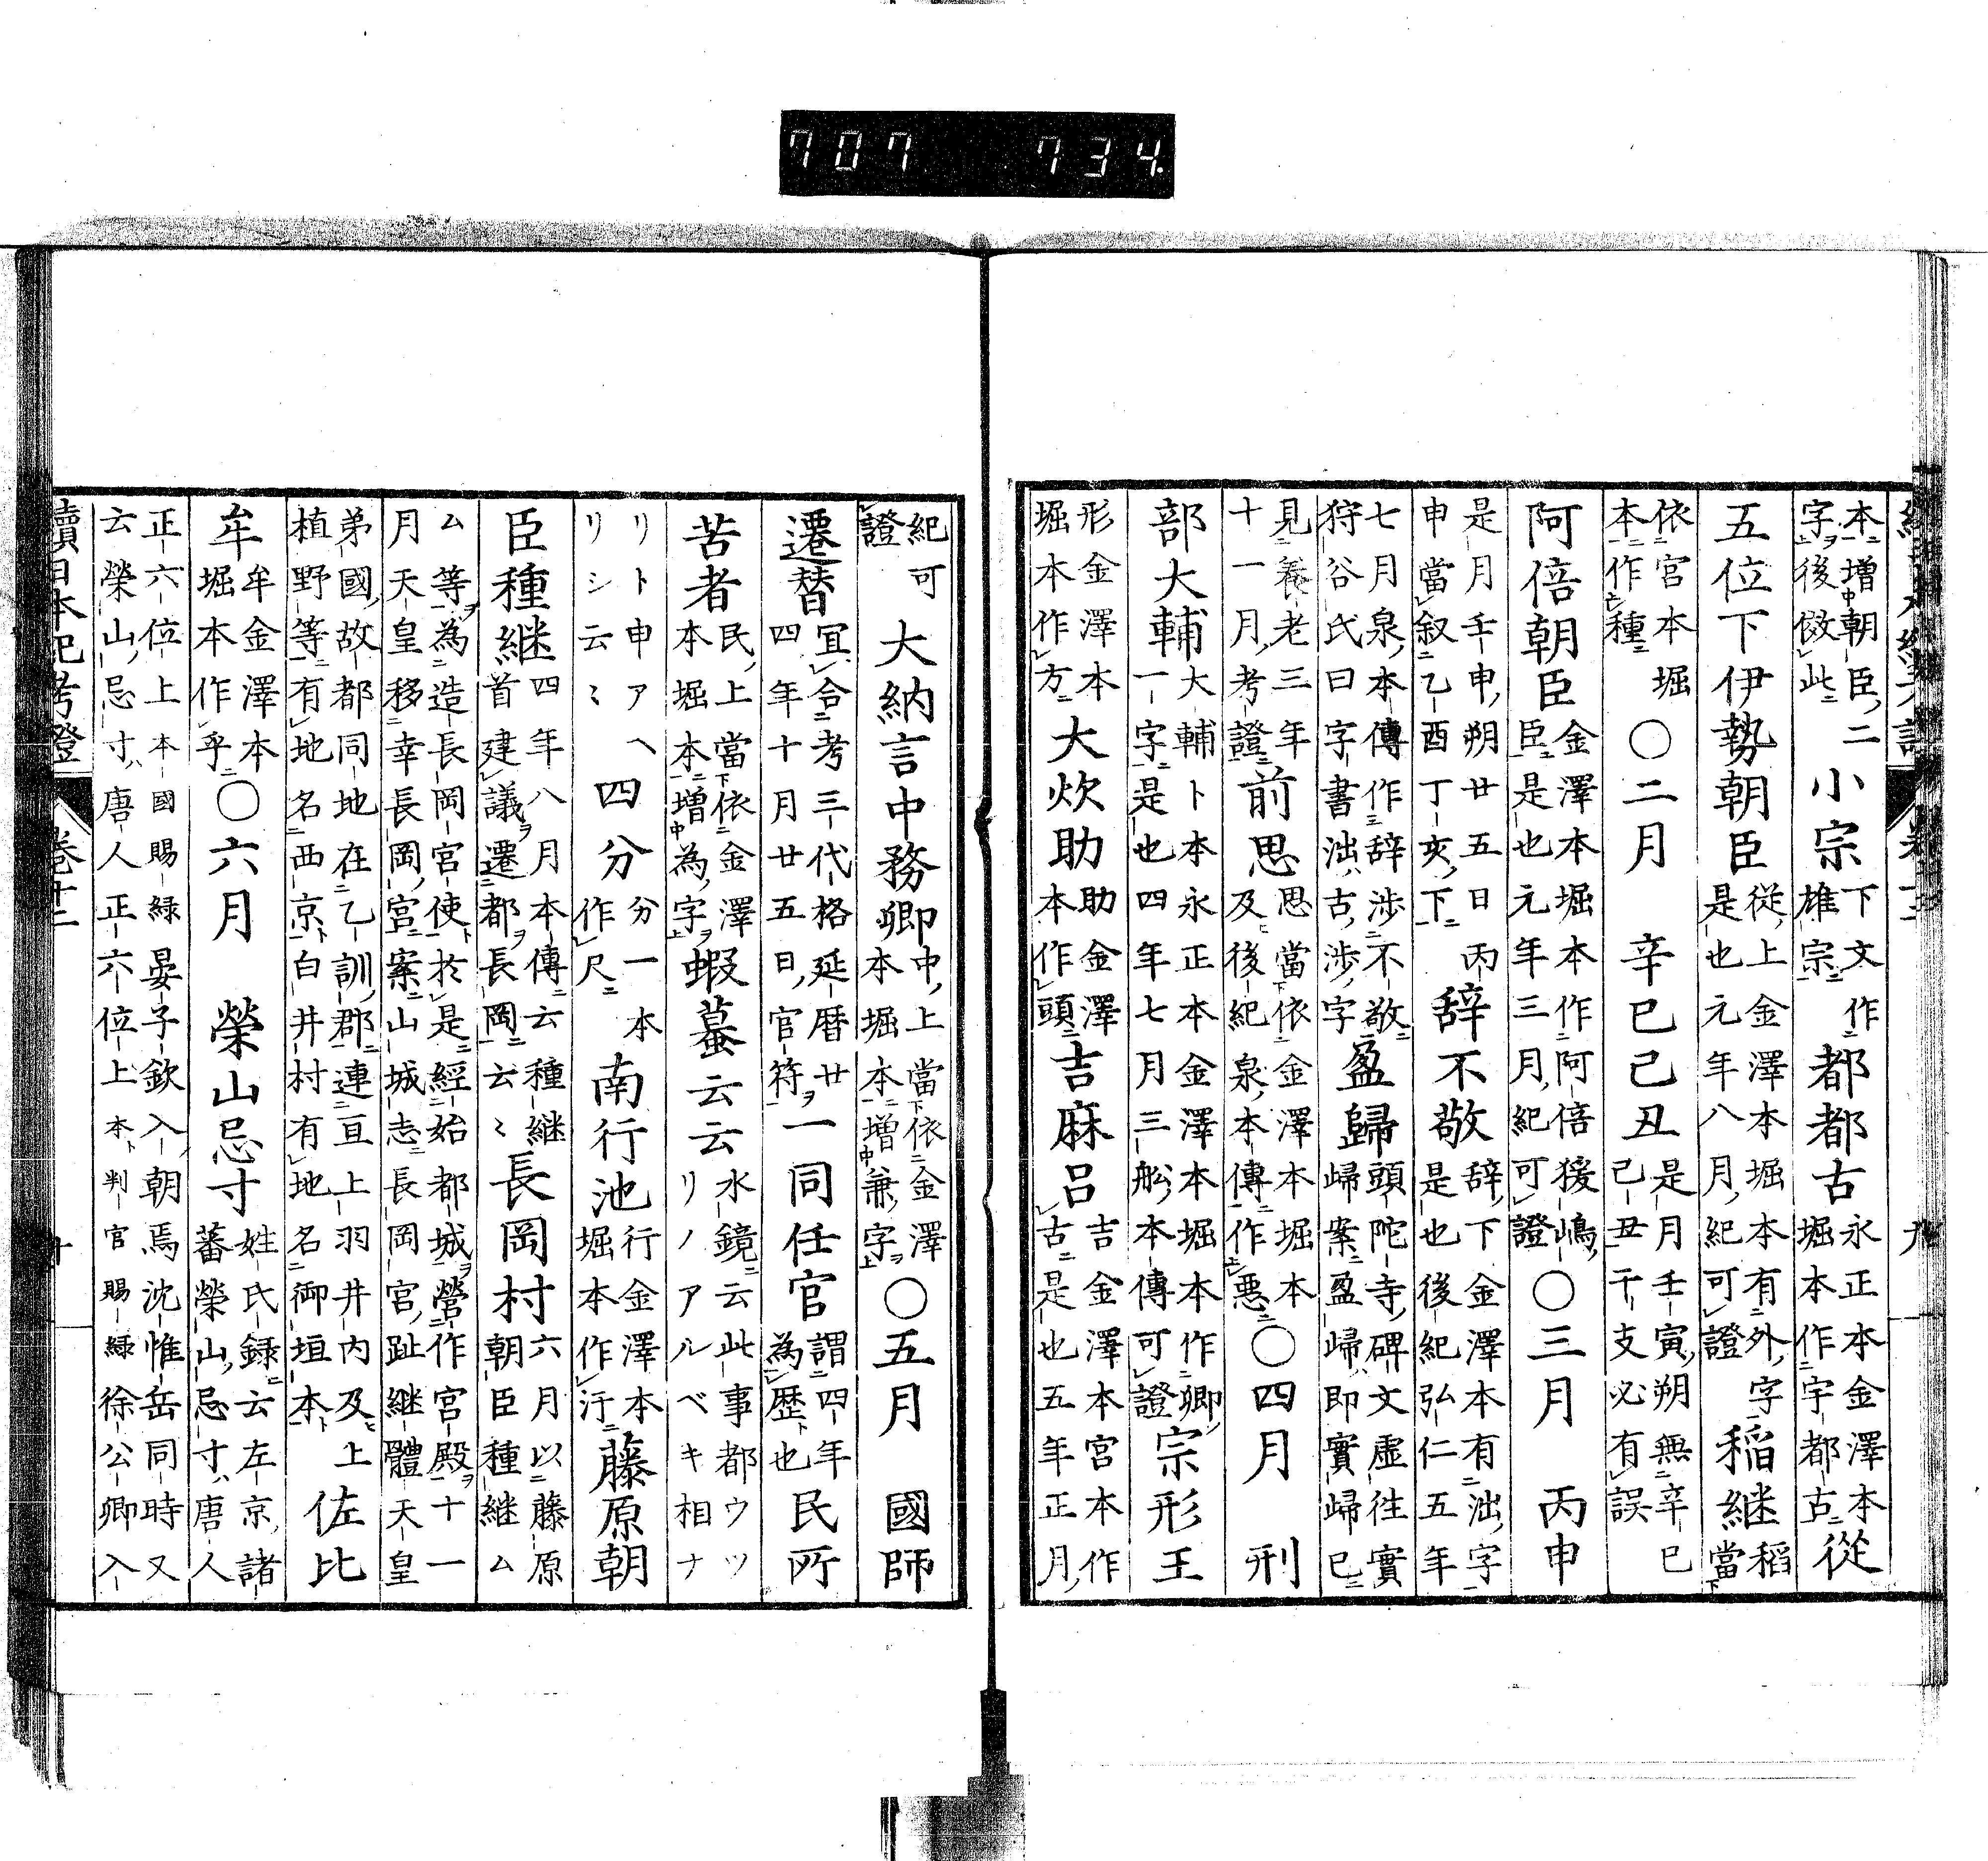 本增朝臣二字後倣此 小宗 下文作雄宗 都都古 永正本金澤本堀本作宇都古 從
五位下伊勢朝臣 從上金澤本堀本有外字是也元年八月紀可證 稲継 稻當
依宮本堀本作種 ○二月 辛巳己丑 是月壬寅朔無辛巳己丑干支必有誤
阿倍朝臣 金澤本堀本作阿倍猨嶋臣是也元年三月紀可證 ○三月 丙申
是月壬申朔廿五日丙申當叙乙酉丁亥下 辞不敬 辞下金澤本有泏字是也後紀弘仁五年
七月泉本傳作辞涉不敬狩谷氏曰字書泏古涉字 盈歸 頭陀寺碑文虛往實歸案盈歸即實歸已
見養老三年十一月考證 前思 思當依金澤本堀本及後紀泉本傳作悪 ○四月 刑
部大輔 大輔卜本永正本金澤本堀本作卿一字是也四年七月三舩本傳可證 宗形王
形金澤本堀本作方 大炊助 助金澤本作頭 吉麻呂 吉金澤本宮本作古是也五年正月
紀可證 大納言中務卿 中上當依金澤本堀本增兼字 ○五月 國師
遷替 冝合考三代格延暦廿四年十月廿五日官符 一同任官 謂四年為歴也 民所
苦者 民上當依金澤本堀本增為字 蝦蟇云云 水鏡云此事都ウツリノアルベキ相ナ
リト申アヘリシ云〻 四分 分一本作尺 南行池 行金澤本堀本作汙 藤原朝
臣種継 四年八月本傳云種継首建議遷都長岡云〻 長岡村 六月以藤原朝臣種継ム
ム等為造長岡宮使於是經始都城營作宮殿十一月天皇移幸長岡宮案山城志長岡宮趾継體天皇
弟國故都同地在乙訓郡連亘上羽井内及上植野等有地名西京白井村有地名御垣本 佐比
牟 牟金澤本堀本作乎 ○六月 榮山忌寸 姓氏録云左京諸蕃榮山忌寸唐人
正六位上本國賜緑晏子欽入朝焉沈惟岳同時又云榮山忌寸唐人正六位上本判官賜緑徐公卿入
續日本紀考證 卷十二 十
707 734